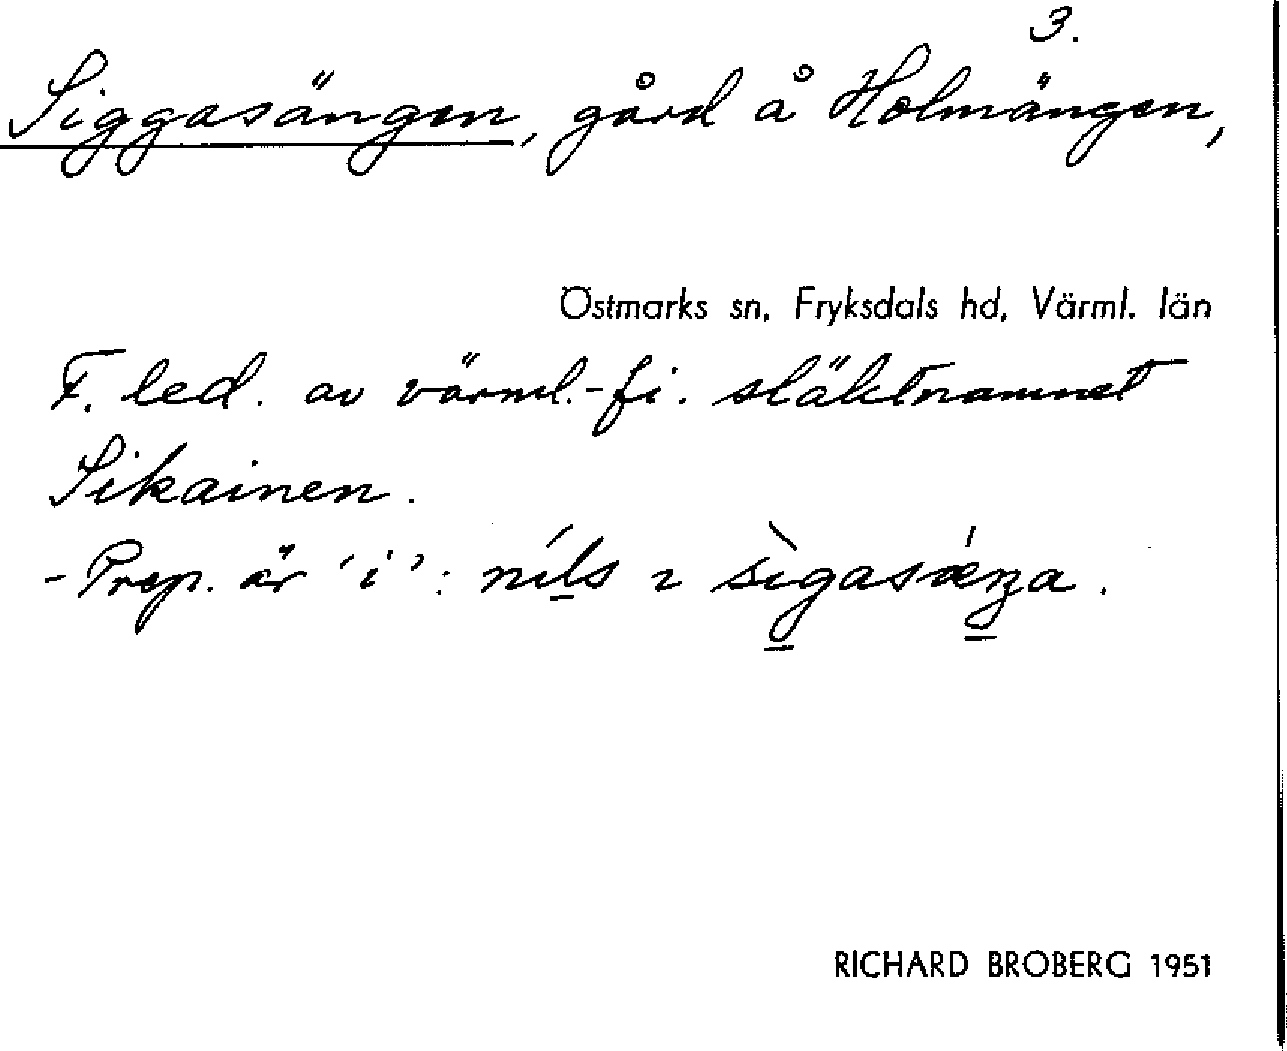 3.
Siggasängen, gård å Holmängen,
Östmarks sn, Fryksdals hd, Värml. län
F. led. av värml.-fi. släktnamnet
Sikainen.
- Prep. är 'i': níls ɩ sìgasǽŋa.
RICHARD BROBERG 1951